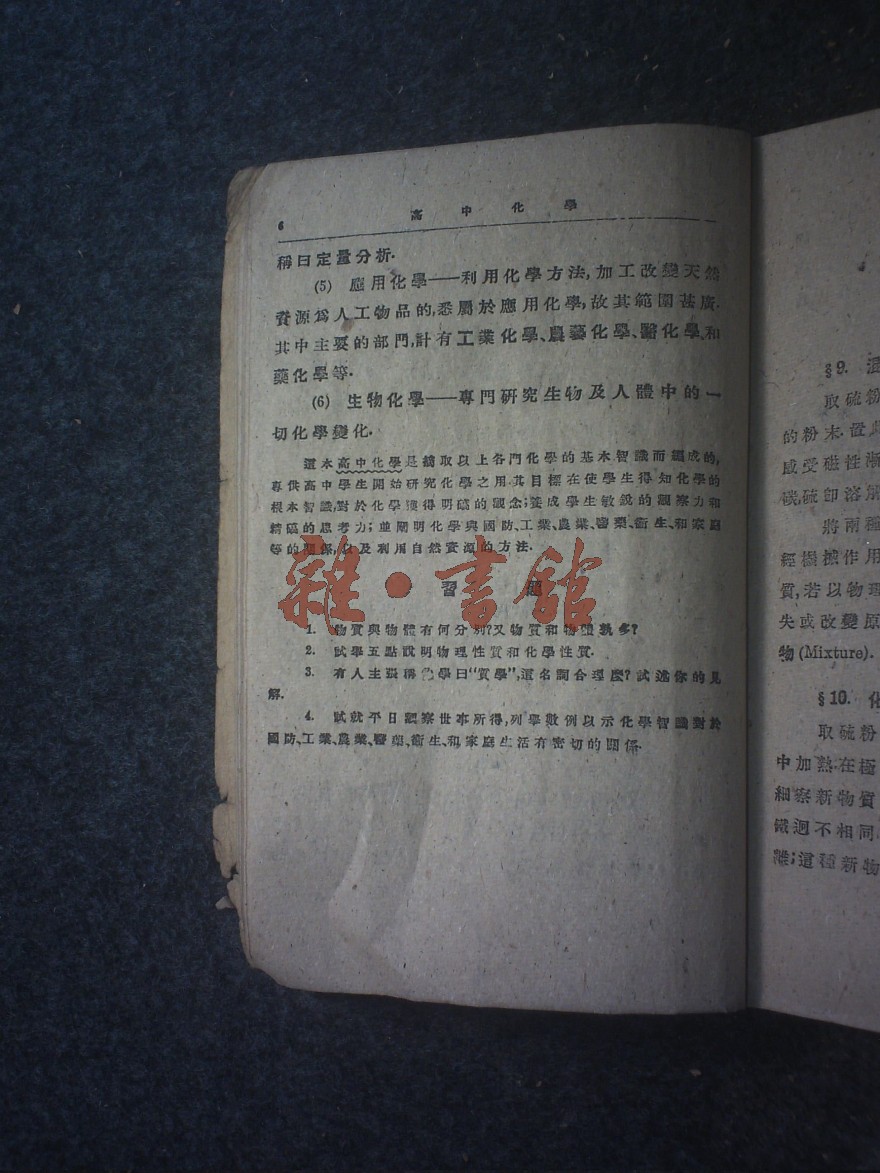 6 高中化學
稱曰定量分析.
(5) 應用化學——利用化學方法,加工改變天然
資源爲人工物品的,悉屬於應用化學,故其範圍甚廣.
其中主要的部門,計有工業化學、農藝化學、醫化學、和
藥化學等.
(6) 生物化學——專門研究生物及人體中的一
切化學變化.
這本高中化學是摘取以上各門化學的基本智識而編成的,
專供高中學生開始研究化學之用.其目標在使學生得知化學的
根本智識,對於化學獲得明確的觀念;養成學生敏銳的觀察力和
精確的思考力;並闡明化學與國防、工業、農業、醫藥、衞生、和家庭
等的關係,以及利用自然資源的方法.
習題
雜·書館
1. 物質與物體有何分別?又物質和物體孰多?
2. 試舉五點說明物理性質和化學性質.
3. 有人主張稱化學曰“質學”,這名詞合理麼?試述你的見
解.
4. 試就平日觀察世事所得,列舉數例以示化學智識對於
國防、工業、農業、醫藥、衞生、和家庭生活有密切的關係.
§9. 混
取硫粉
的粉末.置此
感受磁性漸
碳,硫卽溶解
將兩種
經機械作用
質,若以物理
失或改變原
物(Mixture).
§10. 化
取硫粉
中加熱.在極
細察新物質
鐵迥不相同.
離;這種新物